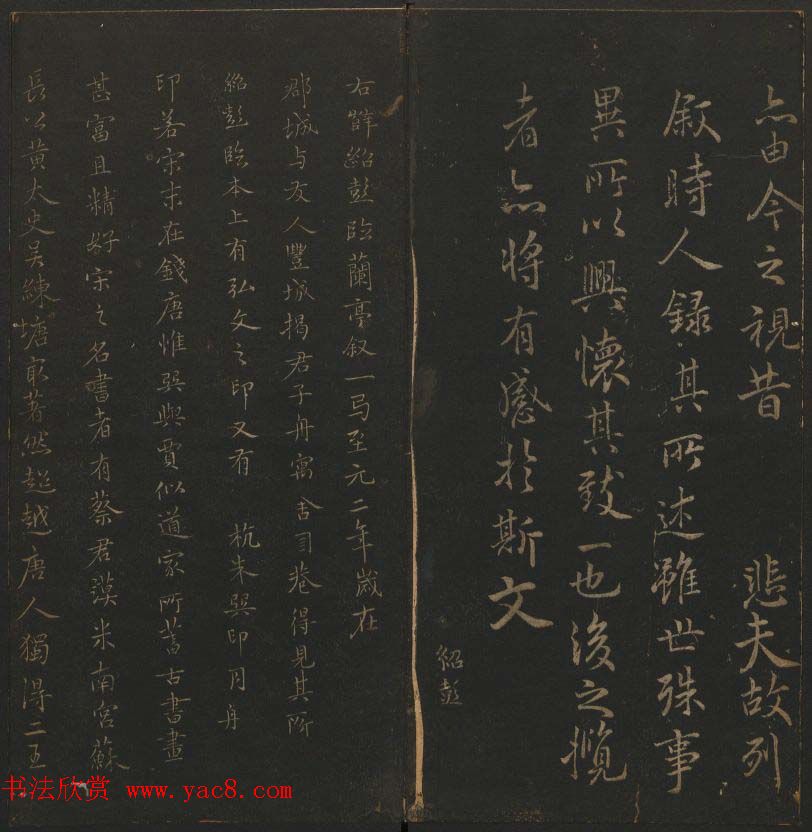 亦由今之視昔 悲夫故列
叙時人録其所述雖世殊事
異所以興懷其致一也後之攬
者亦将有感於斯文
紹彭
右薛紹彭臨蘭亭叙一弓至元二年歲在
郡城与友人豐城揭君子舟寓舍司巷得見其所
紹彭臨本上有弘文之印又有 杭朱巽印月舟
印若宋末在錢唐惟巽與賈似道家所蓄古書畫
甚富且精好宋之名書者有蔡君謨米南宫蘇
長公黄太史吴練塘最著然超越唐人獨得二王
书法欣赏 www.yac8.com